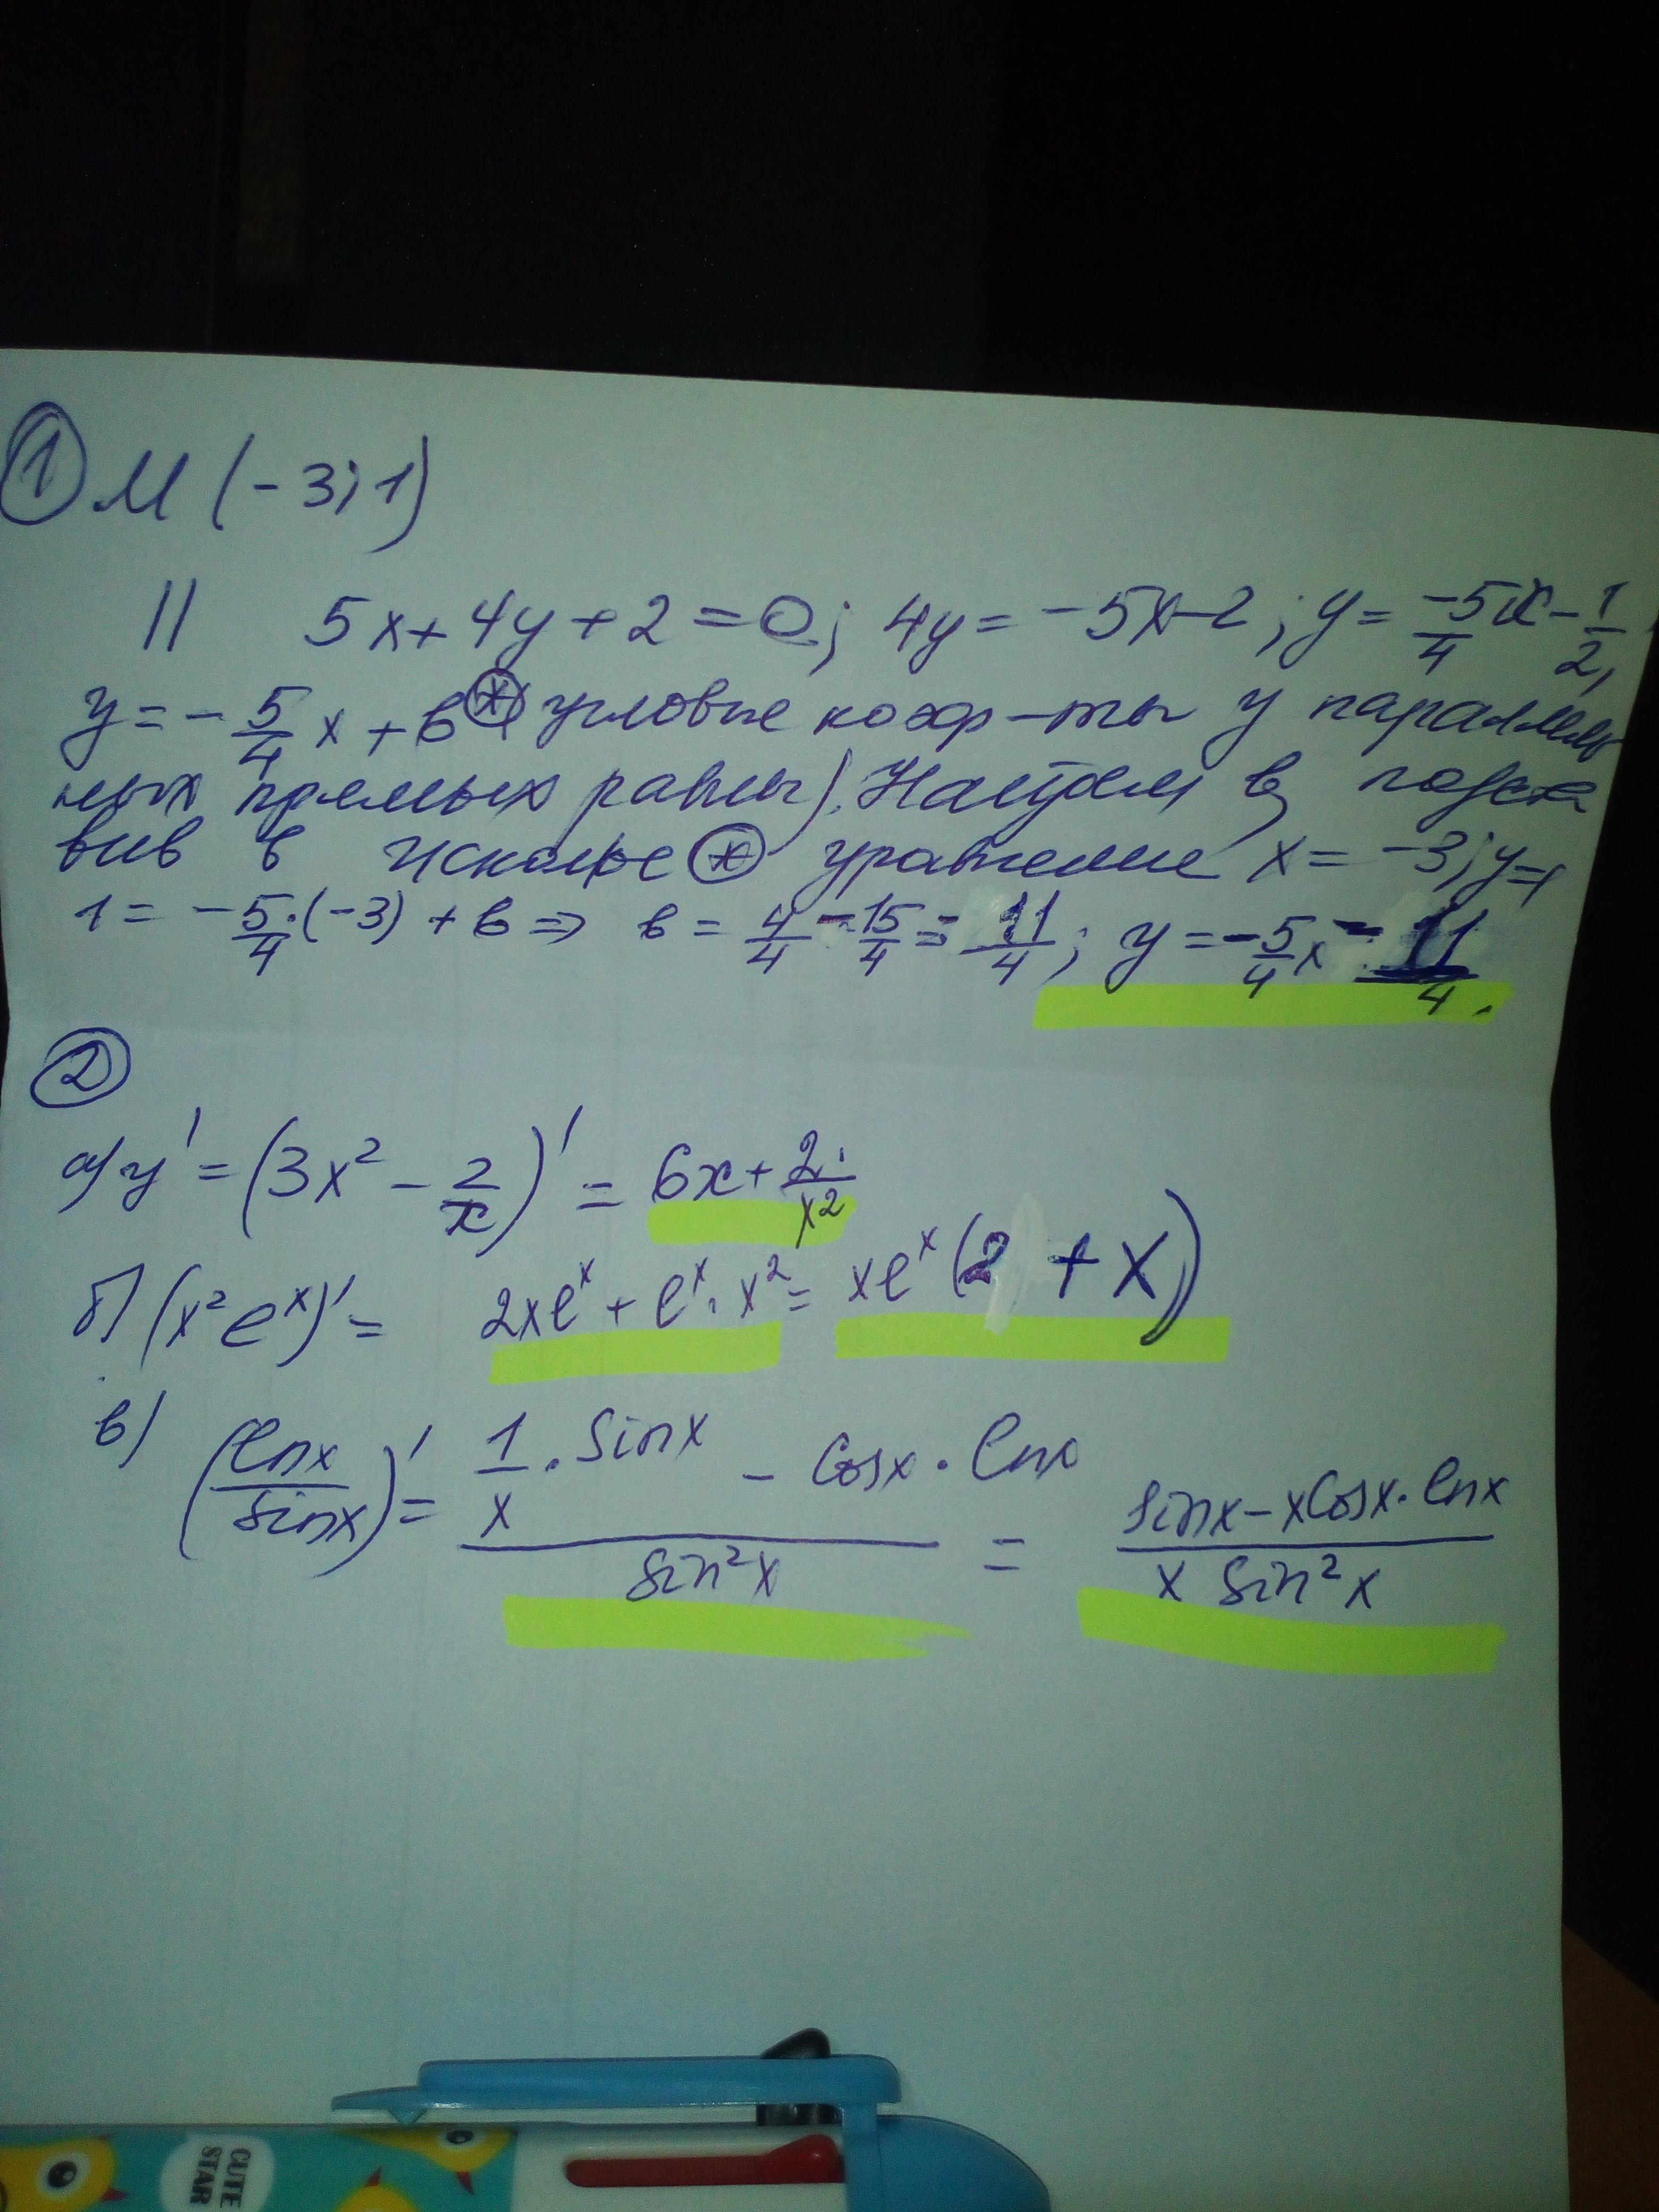 ① М (-3;1)
|| 5x+4y+2=0; 4y=-5x-2; y=-5/4x-1/2,
y=-5/4x+в⊛ угловые коэф-ты у параллель
ных прямых равны). Найдем в, подста
вив в искомое ⊛ уравнение x=-3; y=1
1=-5/4·(-3)+в⇒ в=4/4-15/4=-11/4; y=-5/4x-11/4.
②
а) y'=(3x²-2/x)'=6x+2/x²
б) (x²eˣ)'= 2xeˣ+eˣ·x²=xeˣ(2+x)
в) (lnx/sinx)'=(1/x·sinx-cosx·lnx)/sin²x=(sinx-xcosx·lnx)/(x sin²x)
CUTE
STAR